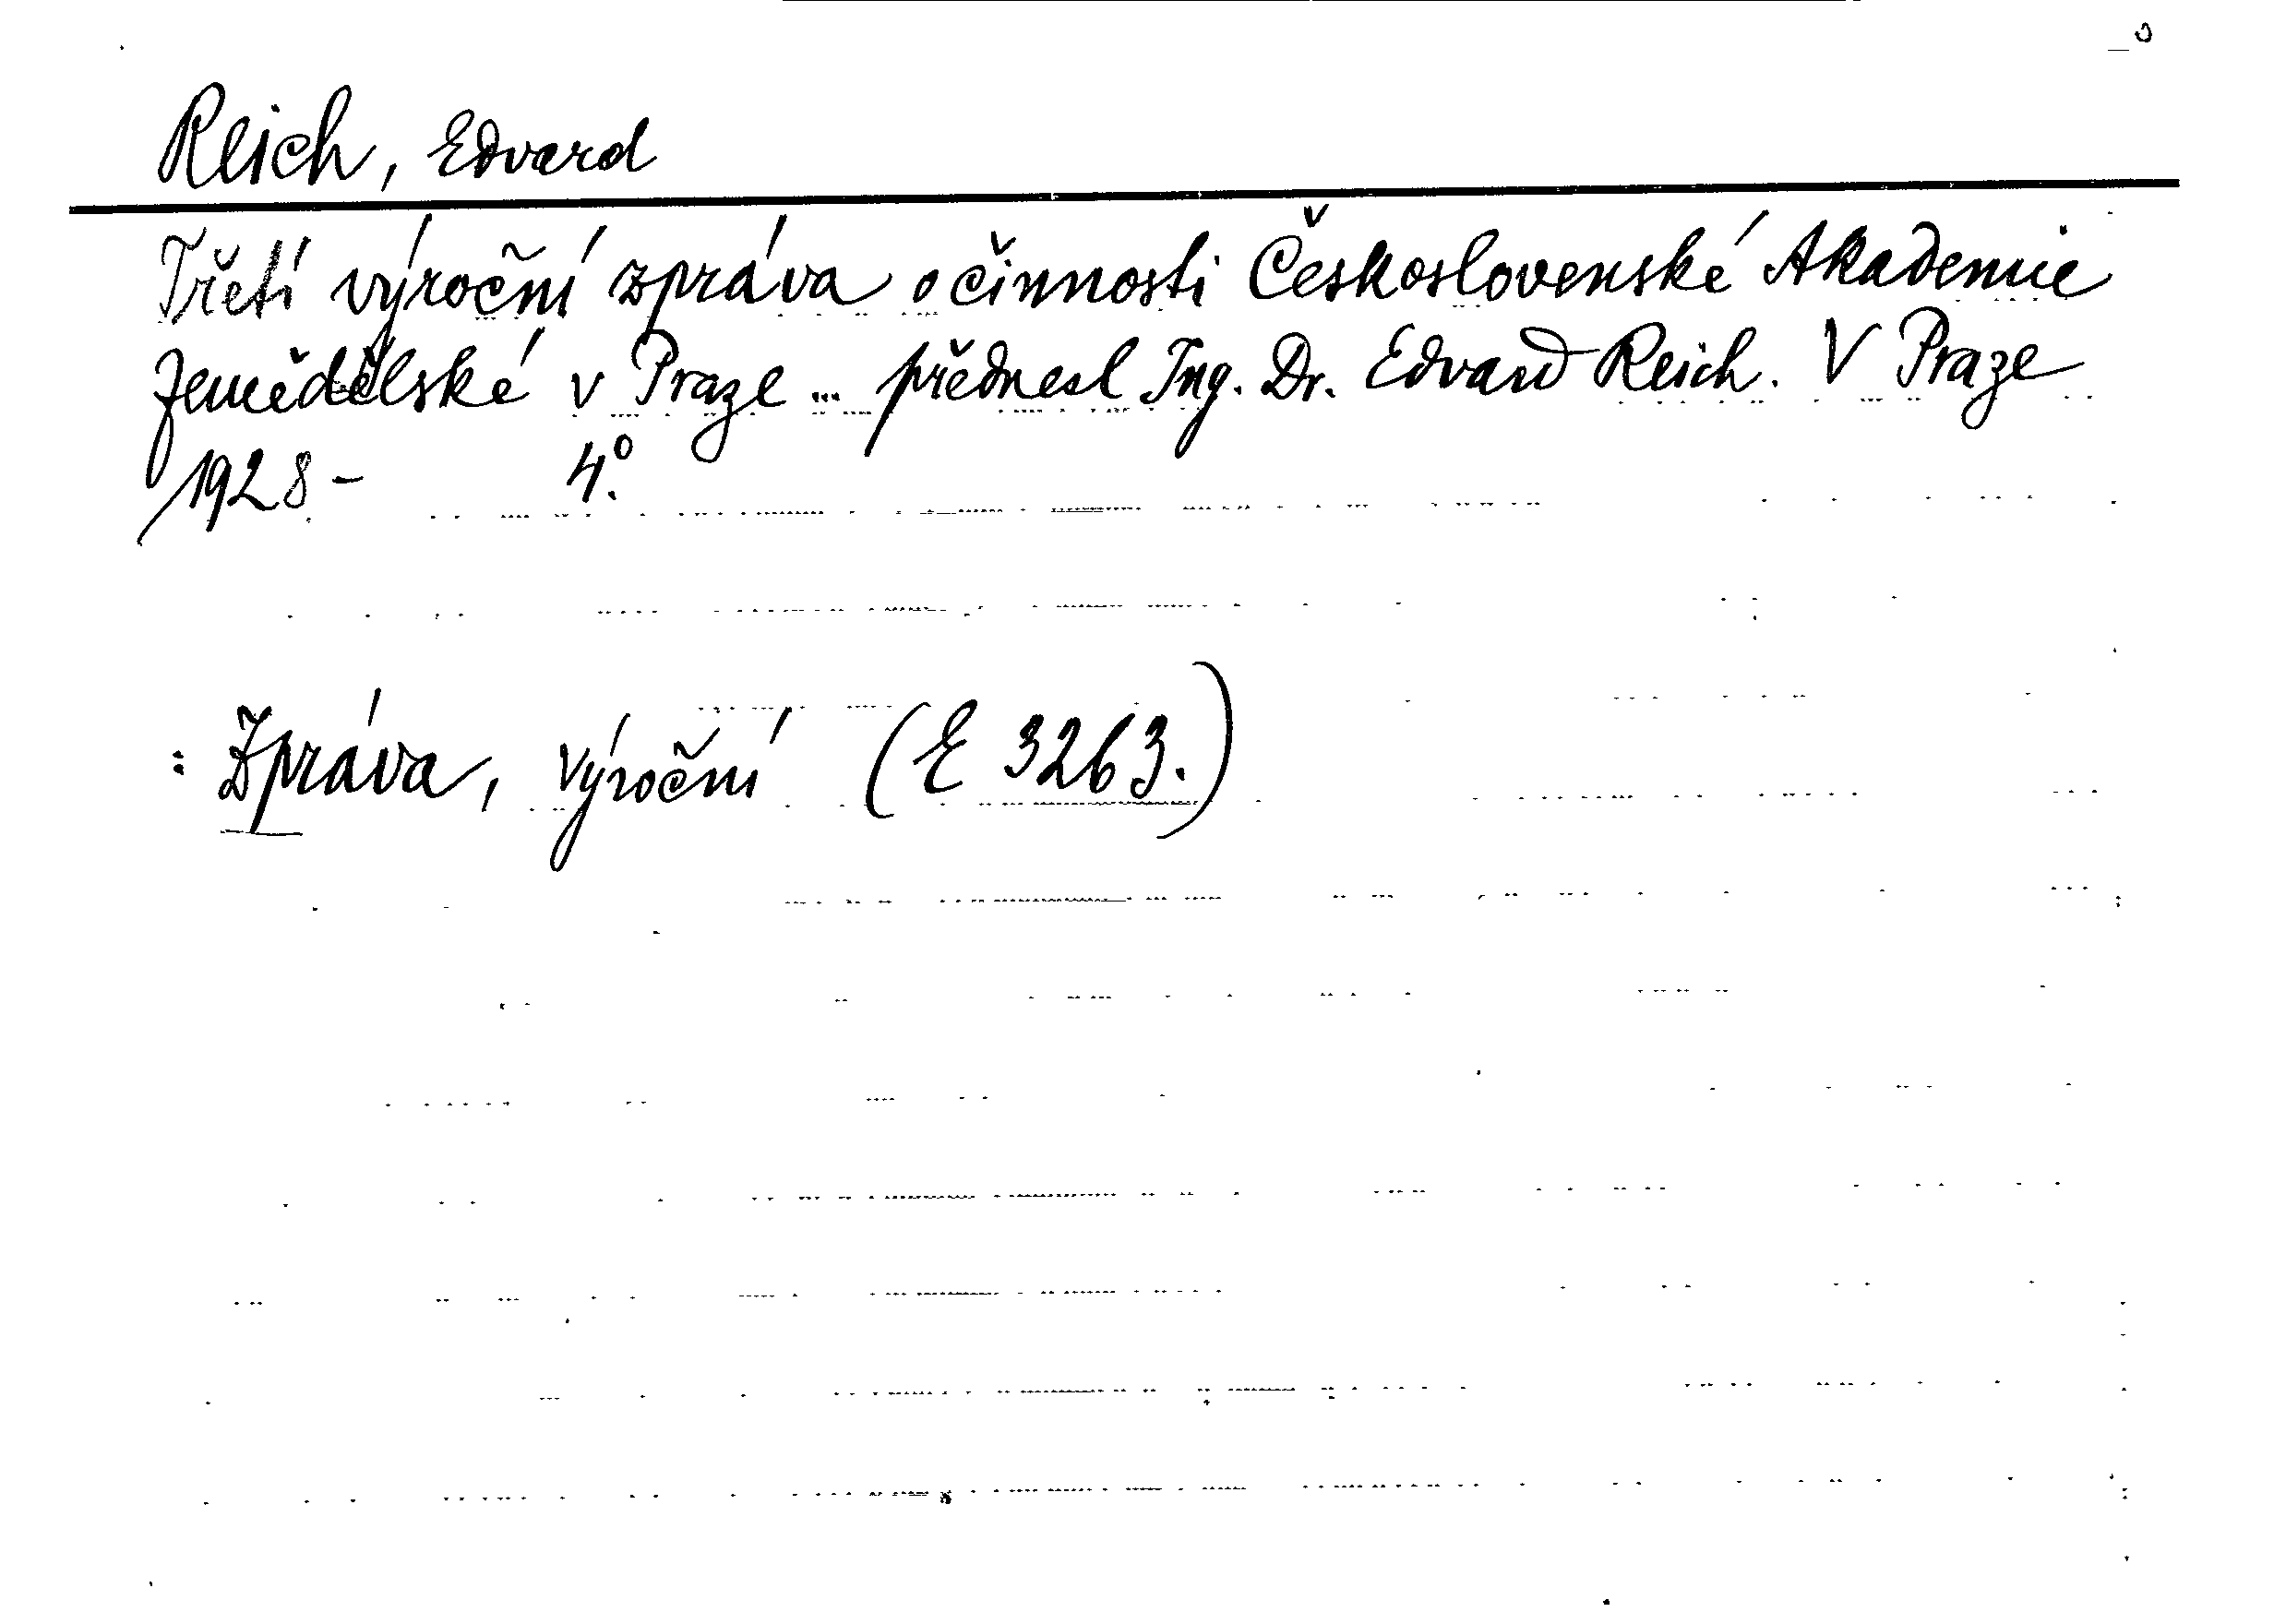 Reich, Edvard
Třetí výroční zpráva o činnosti Československé Akademie
Zemědělské v Praze ... přednesl Ing. Dr. Edvard Reich. V Praze
1928 - 4°.
: Zpráva, výroční (E 3263.)